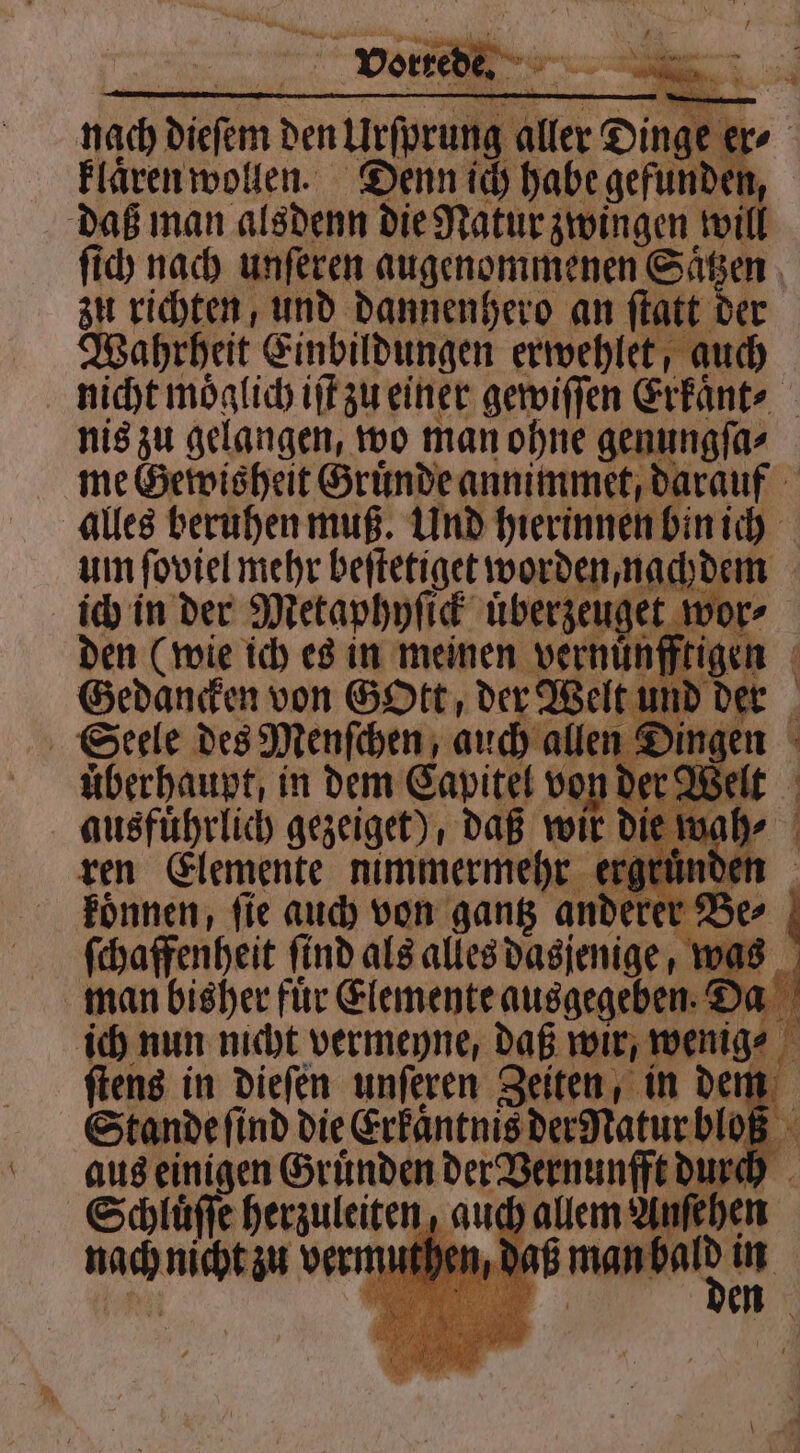 Vorrede.
nach dieſem den Urſprung aller Dinge er⸗
klaͤren wollen. Denn ich habe gefunden,
daß man alsdenn die Natur zwingen will
ſich nach unſeren augenommenen Saͤtzen
zu richten, und dannenhero an ſtatt der
Wahrheit Einbildungen erwehlet, auch
nicht moͤglich iſt zu einer gewiſſen Erkaͤnt⸗
nis zu gelangen, wo man ohne genungſa⸗
me Gewisheit Gruͤnde annimmet, darauf
alles beruhen muß. Und hierinnen bin ich
um ſoviel mehr beſtetiget worden, nachdem
ich in der Metaphyſick uͤberzeuget wor⸗
den (wie ich es in meinen vernuͤnfftigen
Gedancken von GOtt, der Welt und der
Seele des Menſchen, auch allen Dingen
uͤberhaupt, in dem Capitel von der Welt
ausfuͤhrlich gezeiget), daß wir die wah⸗
ren Elemente nimmermehr ergruͤnden
koͤnnen, ſie auch von gantz anderer Be⸗
ſchaffenheit ſind als alles dasjenige, was
man bisher fuͤr Elemente ausgegeben. Da
ich nun nicht vermeyne, daß wir, wenig⸗
ſtens in dieſen unſeren Zeiten, in dem
Stande ſind die Erkaͤntnis der Natur bloß
aus einigen Gruͤnden der Vernunfft durch
Schluͤſſe herzuleiten, auch allem Anſehen
nach nicht zu vermuthen, daß man bald in
den